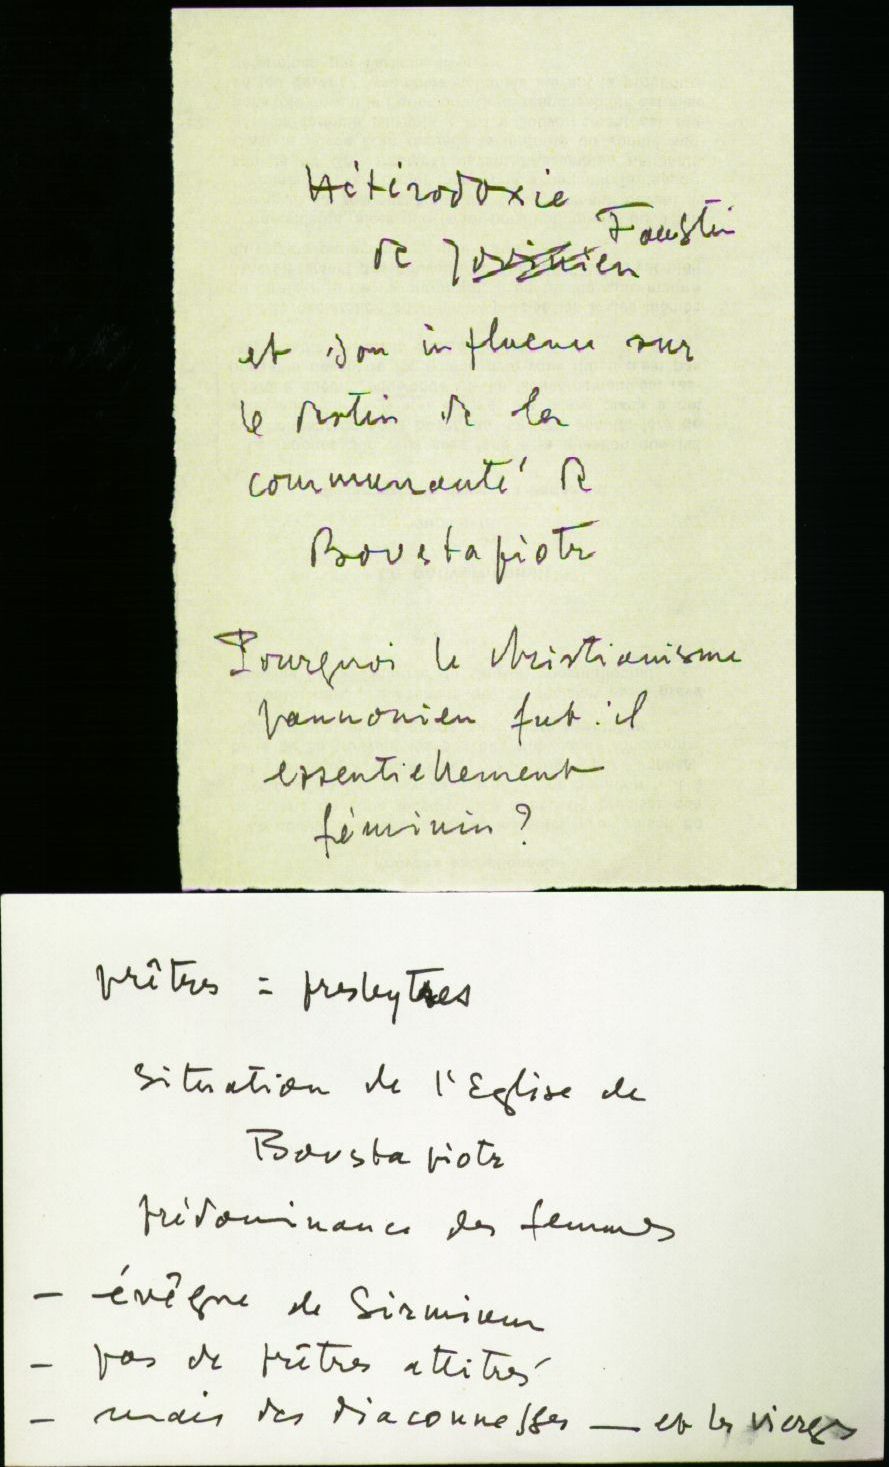 Hétérodoxie
Faustin
de Jovinien
et son influence sur
le destin de la
communauté de
Bovstapiotr
Pourquoi le christianisme
pannonien fut-il
essentiellement
féminin ?
prêtres = presbytres
Situation de l'Eglise de
Bovstapiotr
prédominance des femmes
– évêque de Sirmium
– pas de prêtres attitrés
– mais des diaconnesses — et les vierges